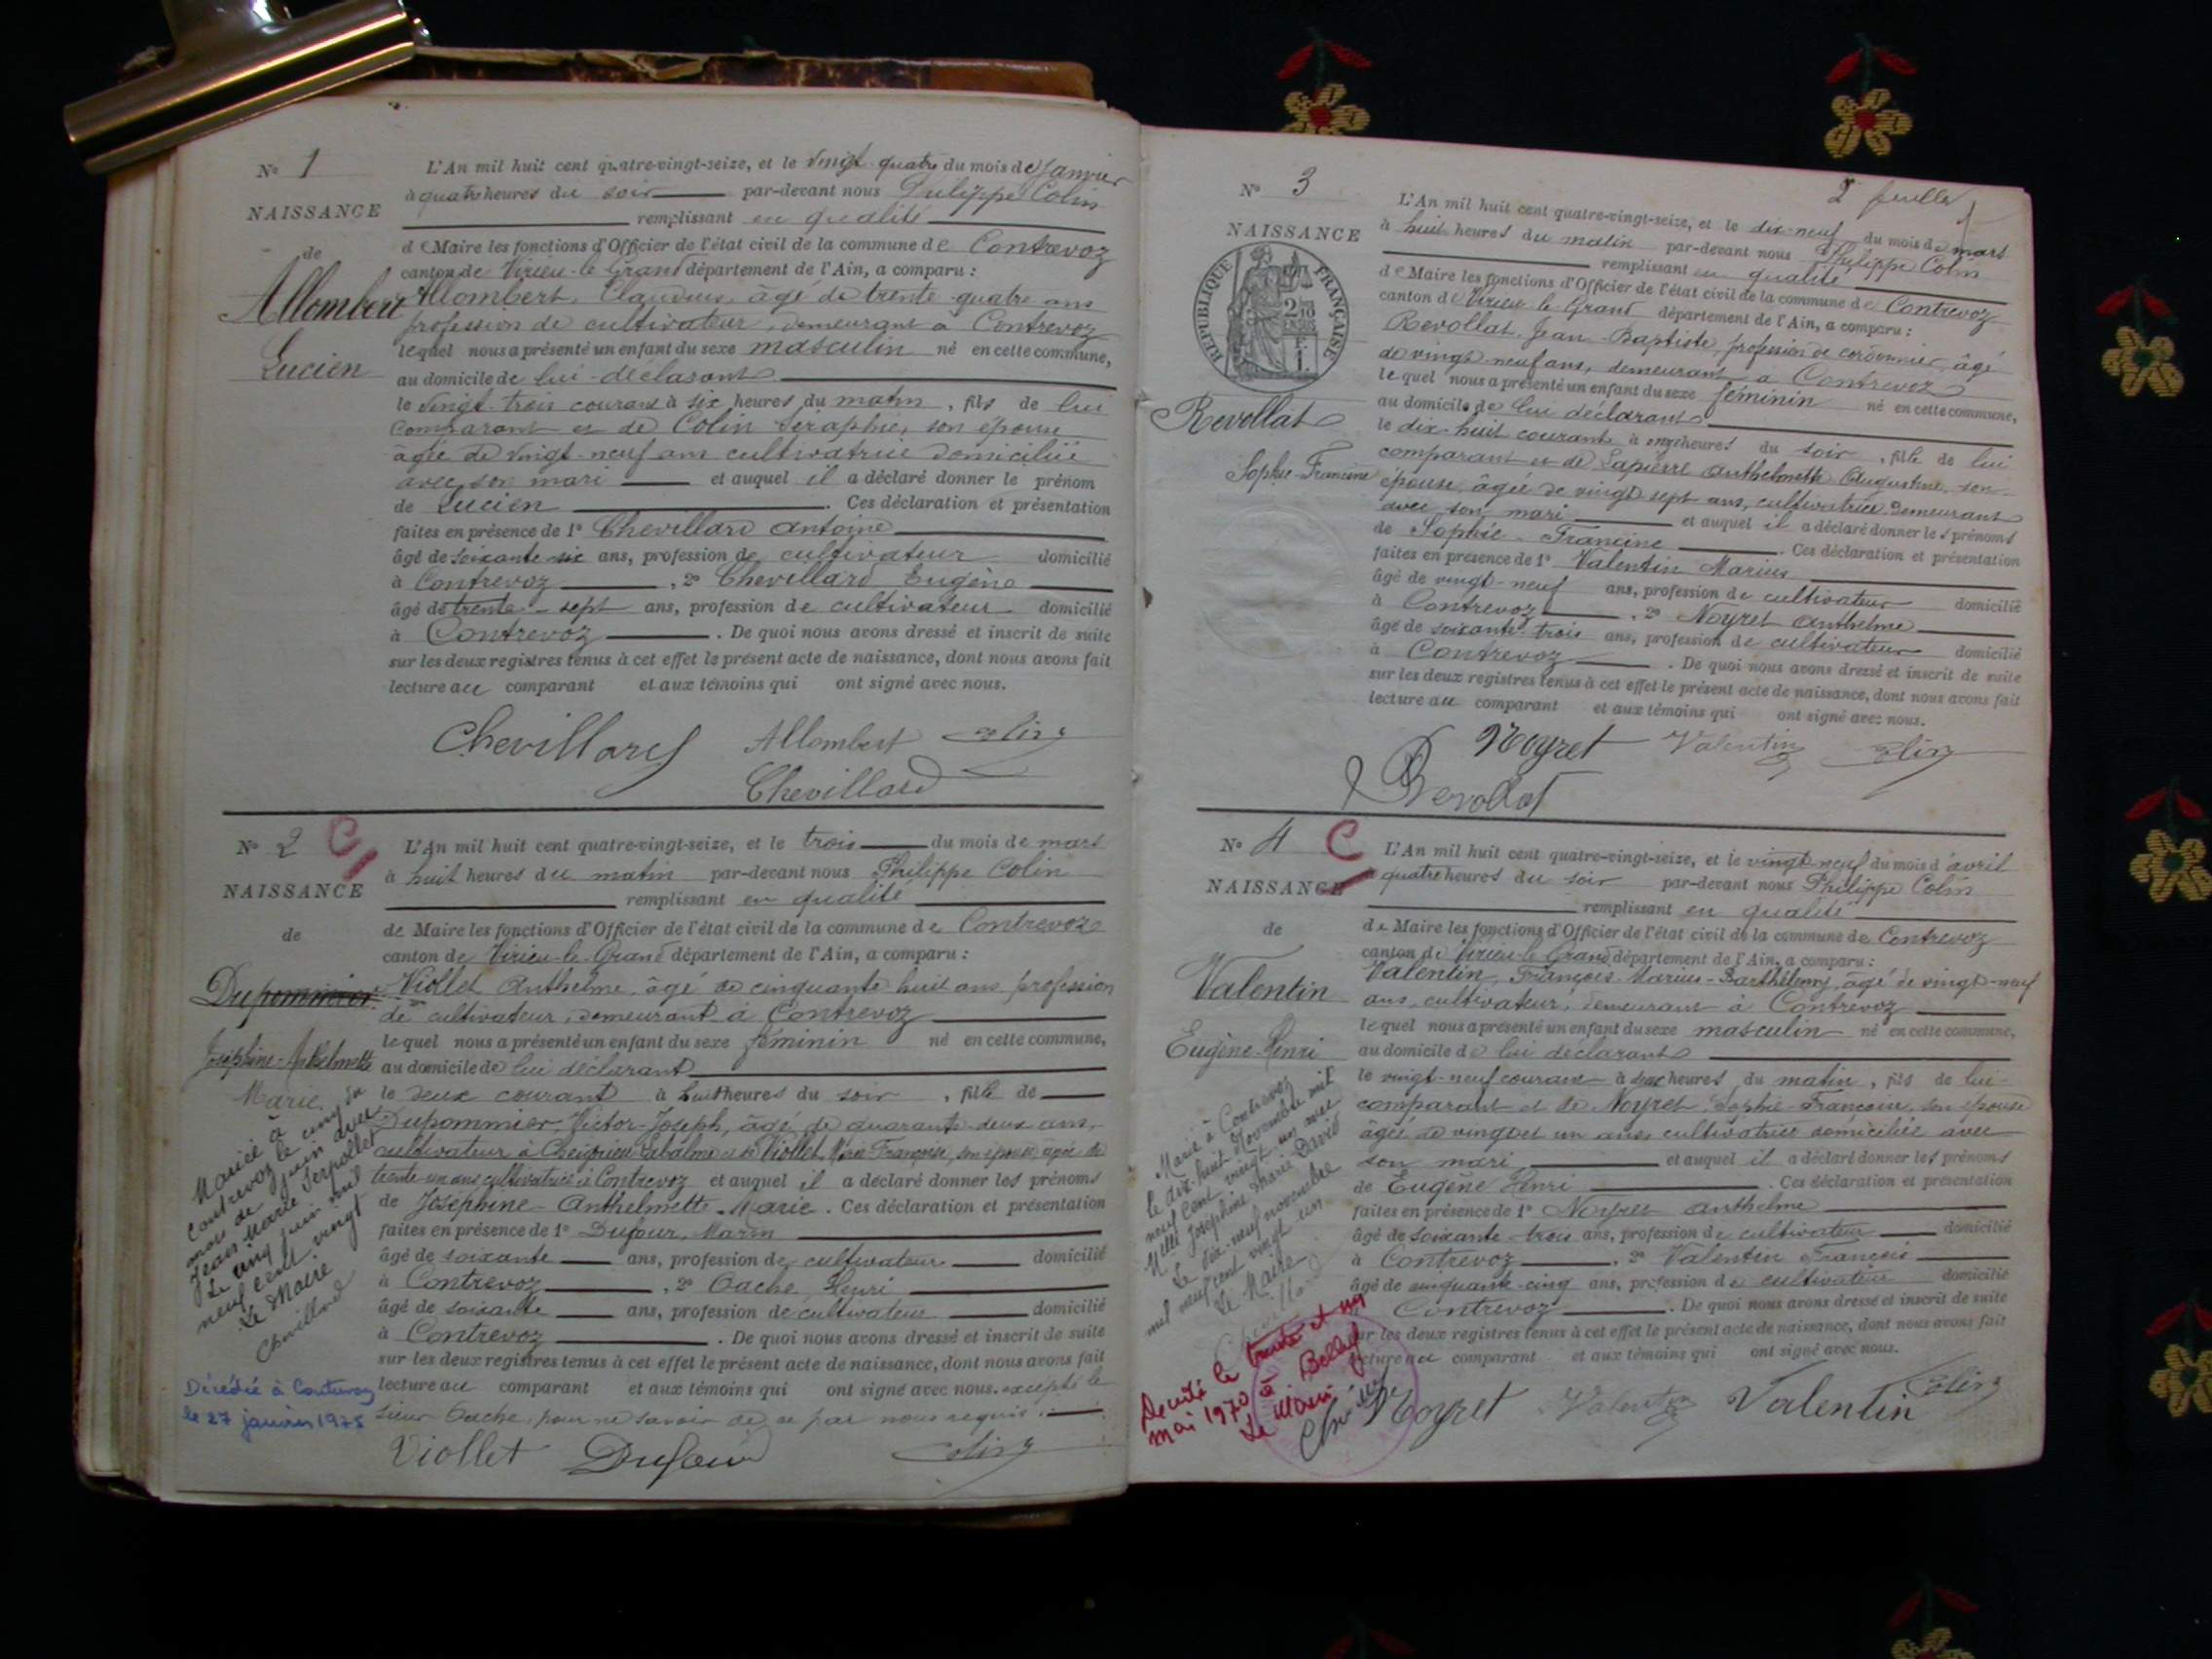 Nº 1
NAISSANCE
de
Allombert
Lucien
L'An mil huit cent quatre-vingt-seize, et le vingt-quatre du mois de Janvier
à quatre heures du soir par-devant nous Philippe Colin
remplissant en qualité
de Maire les fonctions d'Officier de l'état civil de la commune de Contrevoz
canton de Virieu-le-Grand département de l'Ain, a comparu :
Allombert, Claudius, âgé de trente-quatre ans
profession de cultivateur, demeurant à Contrevoz
lequel nous a présenté un enfant du sexe masculin né en cette commune,
au domicile de lui déclarant
le vingt-trois courant à six heures du matin, fils de lui
comparant et de Colin Séraphie, son épouse
âgée de vingt-neuf ans cultivatrice domiciliée
avec son mari et auquel il a déclaré donner le prénom
de Lucien. Ces déclaration et présentation
faites en présence de 1º Chevillard Antoine
âgé de soixante-six ans, profession de cultivateur domicilié
à Contrevoz, 2º Chevillard Eugène
âgé de trente-sept ans, profession de cultivateur domicilié
à Contrevoz. De quoi nous avons dressé et inscrit de suite
sur les deux registres tenus à cet effet le présent acte de naissance, dont nous avons fait
lecture au comparant et aux témoins qui ont signé avec nous.
Chevillard Allombert Colin
Chevillard
Nº 2 C
NAISSANCE
de
Dupommier
Joséphine-Anthelmette
Marie
Mariée à
Contrevoz le cinq du
mois de juin avec
Jean Marie Serpollet
Le cinq juin mil
neuf cent vingt
Le Maire
Chevillard
Décédée à Contrevoz
le 27 janvier 1975
L'An mil huit cent quatre-vingt-seize, et le trois du mois de mars
à huit heures du matin par-devant nous Philippe Colin
remplissant en qualité
de Maire les fonctions d'Officier de l'état civil de la commune de Contrevoz
canton de Virieu-le-Grand département de l'Ain, a comparu :
Viollet Anthelme, âgé de cinquante huit ans profession
de cultivateur, demeurant à Contrevoz
lequel nous a présenté un enfant du sexe féminin né en cette commune,
au domicile de lui déclarant
le deux courant à huit heures du soir, fille de
Dupommier, Victor-Joseph, âgé de quarante deux ans,
cultivateur à Cheignieu-Labalme et de Viollet, Marie-Françoise, son épouse âgée de
trente-un ans cultivatrice à Contrevoz et auquel il a déclaré donner les prénoms
de Joséphine-Anthelmette-Marie. Ces déclaration et présentation
faites en présence de 1º Dufour, Marin
âgé de soixante ans, profession de cultivateur domicilié
à Contrevoz, 2º Cache, Henri
âgé de soixante ans, profession de cultivateur domicilié
à Contrevoz. De quoi nous avons dressé et inscrit de suite
sur les deux registres tenus à cet effet le présent acte de naissance, dont nous avons fait
lecture au comparant et aux témoins qui ont signé avec nous. excepté le
sieur Cache, pour ne savoir de ce par nous requis.
Viollet Dufour Colin
2 feuille
Nº 3
NAISSANCE
RÉPUBLIQUE FRANÇAISE
Revollat
Sophie-Francine
L'An mil huit cent quatre-vingt-seize, et le dix-neuf du mois de mars
à huit heures du matin par-devant nous Philippe Colin
remplissant en qualité
de Maire les fonctions d'Officier de l'état civil de la commune de Contrevoz
canton de Virieu-le-Grand département de l'Ain, a comparu :
Revollat, Jean-Baptiste, profession de cordonnier, âgé
de vingt-neuf ans, demeurant à Contrevoz
lequel nous a présenté un enfant du sexe féminin né en cette commune,
au domicile de lui déclarant
le dix-huit courant à onze heures du soir, fille de lui
comparant et de Lapierre Anthelmette Augustine, son
épouse, âgée de vingt sept ans, cultivatrice demeurant
avec son mari et auquel il a déclaré donner les prénoms
de Sophie-Francine. Ces déclaration et présentation
faites en présence de 1º Valentin Marius
âgé de vingt-neuf ans, profession de cultivateur domicilié
à Contrevoz, 2º Noyret Anthelme
âgé de soixante-trois ans, profession de cultivateur domicilié
à Contrevoz. De quoi nous avons dressé et inscrit de suite
sur les deux registres tenus à cet effet le présent acte de naissance, dont nous avons fait
lecture au comparant et aux témoins qui ont signé avec nous.
Noyret Valentin Colin
Revollat
Nº 4 C
NAISSANCE
de
Valentin
Eugène-Henri
Marié à Contrevoz
le dix-huit Novembre mil
neuf cent vingt un avec
Melle Joséphine Marie David
Le dix-neuf novembre
mil neuf cent vingt un
Le Maire
Décédé le trente et un
mai 1970 à Belley
Le Maire
L'An mil huit cent quatre-vingt-seize, et le vingt-neuf du mois d'avril
à quatre heures du soir par-devant nous Philippe Colin
remplissant en qualité
de Maire les fonctions d'Officier de l'état civil de la commune de Contrevoz
canton de Virieu-le-Grand département de l'Ain, a comparu :
Valentin, François-Marius-Barthélemy, âgé de vingt-neuf
ans, cultivateur, demeurant à Contrevoz
lequel nous a présenté un enfant du sexe masculin né en cette commune,
au domicile de lui déclarant
le vingt-neuf courant à heures du matin, fils de lui-
comparant et de Noyret, Sophie-Françoise, son épouse
âgée de vingt et un ans, cultivatrice domiciliée avec
son mari et auquel il a déclaré donner les prénoms
de Eugène Henri. Ces déclaration et présentation
faites en présence de 1º Noyret Anthelme
âgé de soixante-trois ans, profession de cultivateur domicilié
à Contrevoz, 2º Valentin François
âgé de cinquante-cinq ans, profession de cultivateur domicilié
Contrevoz. De quoi nous avons dressé et inscrit de suite
sur les deux registres tenus à cet effet le présent acte de naissance, dont nous avons fait
lecture au comparant et aux témoins qui ont signé avec nous.
Noyret Valentin Valentin Colin